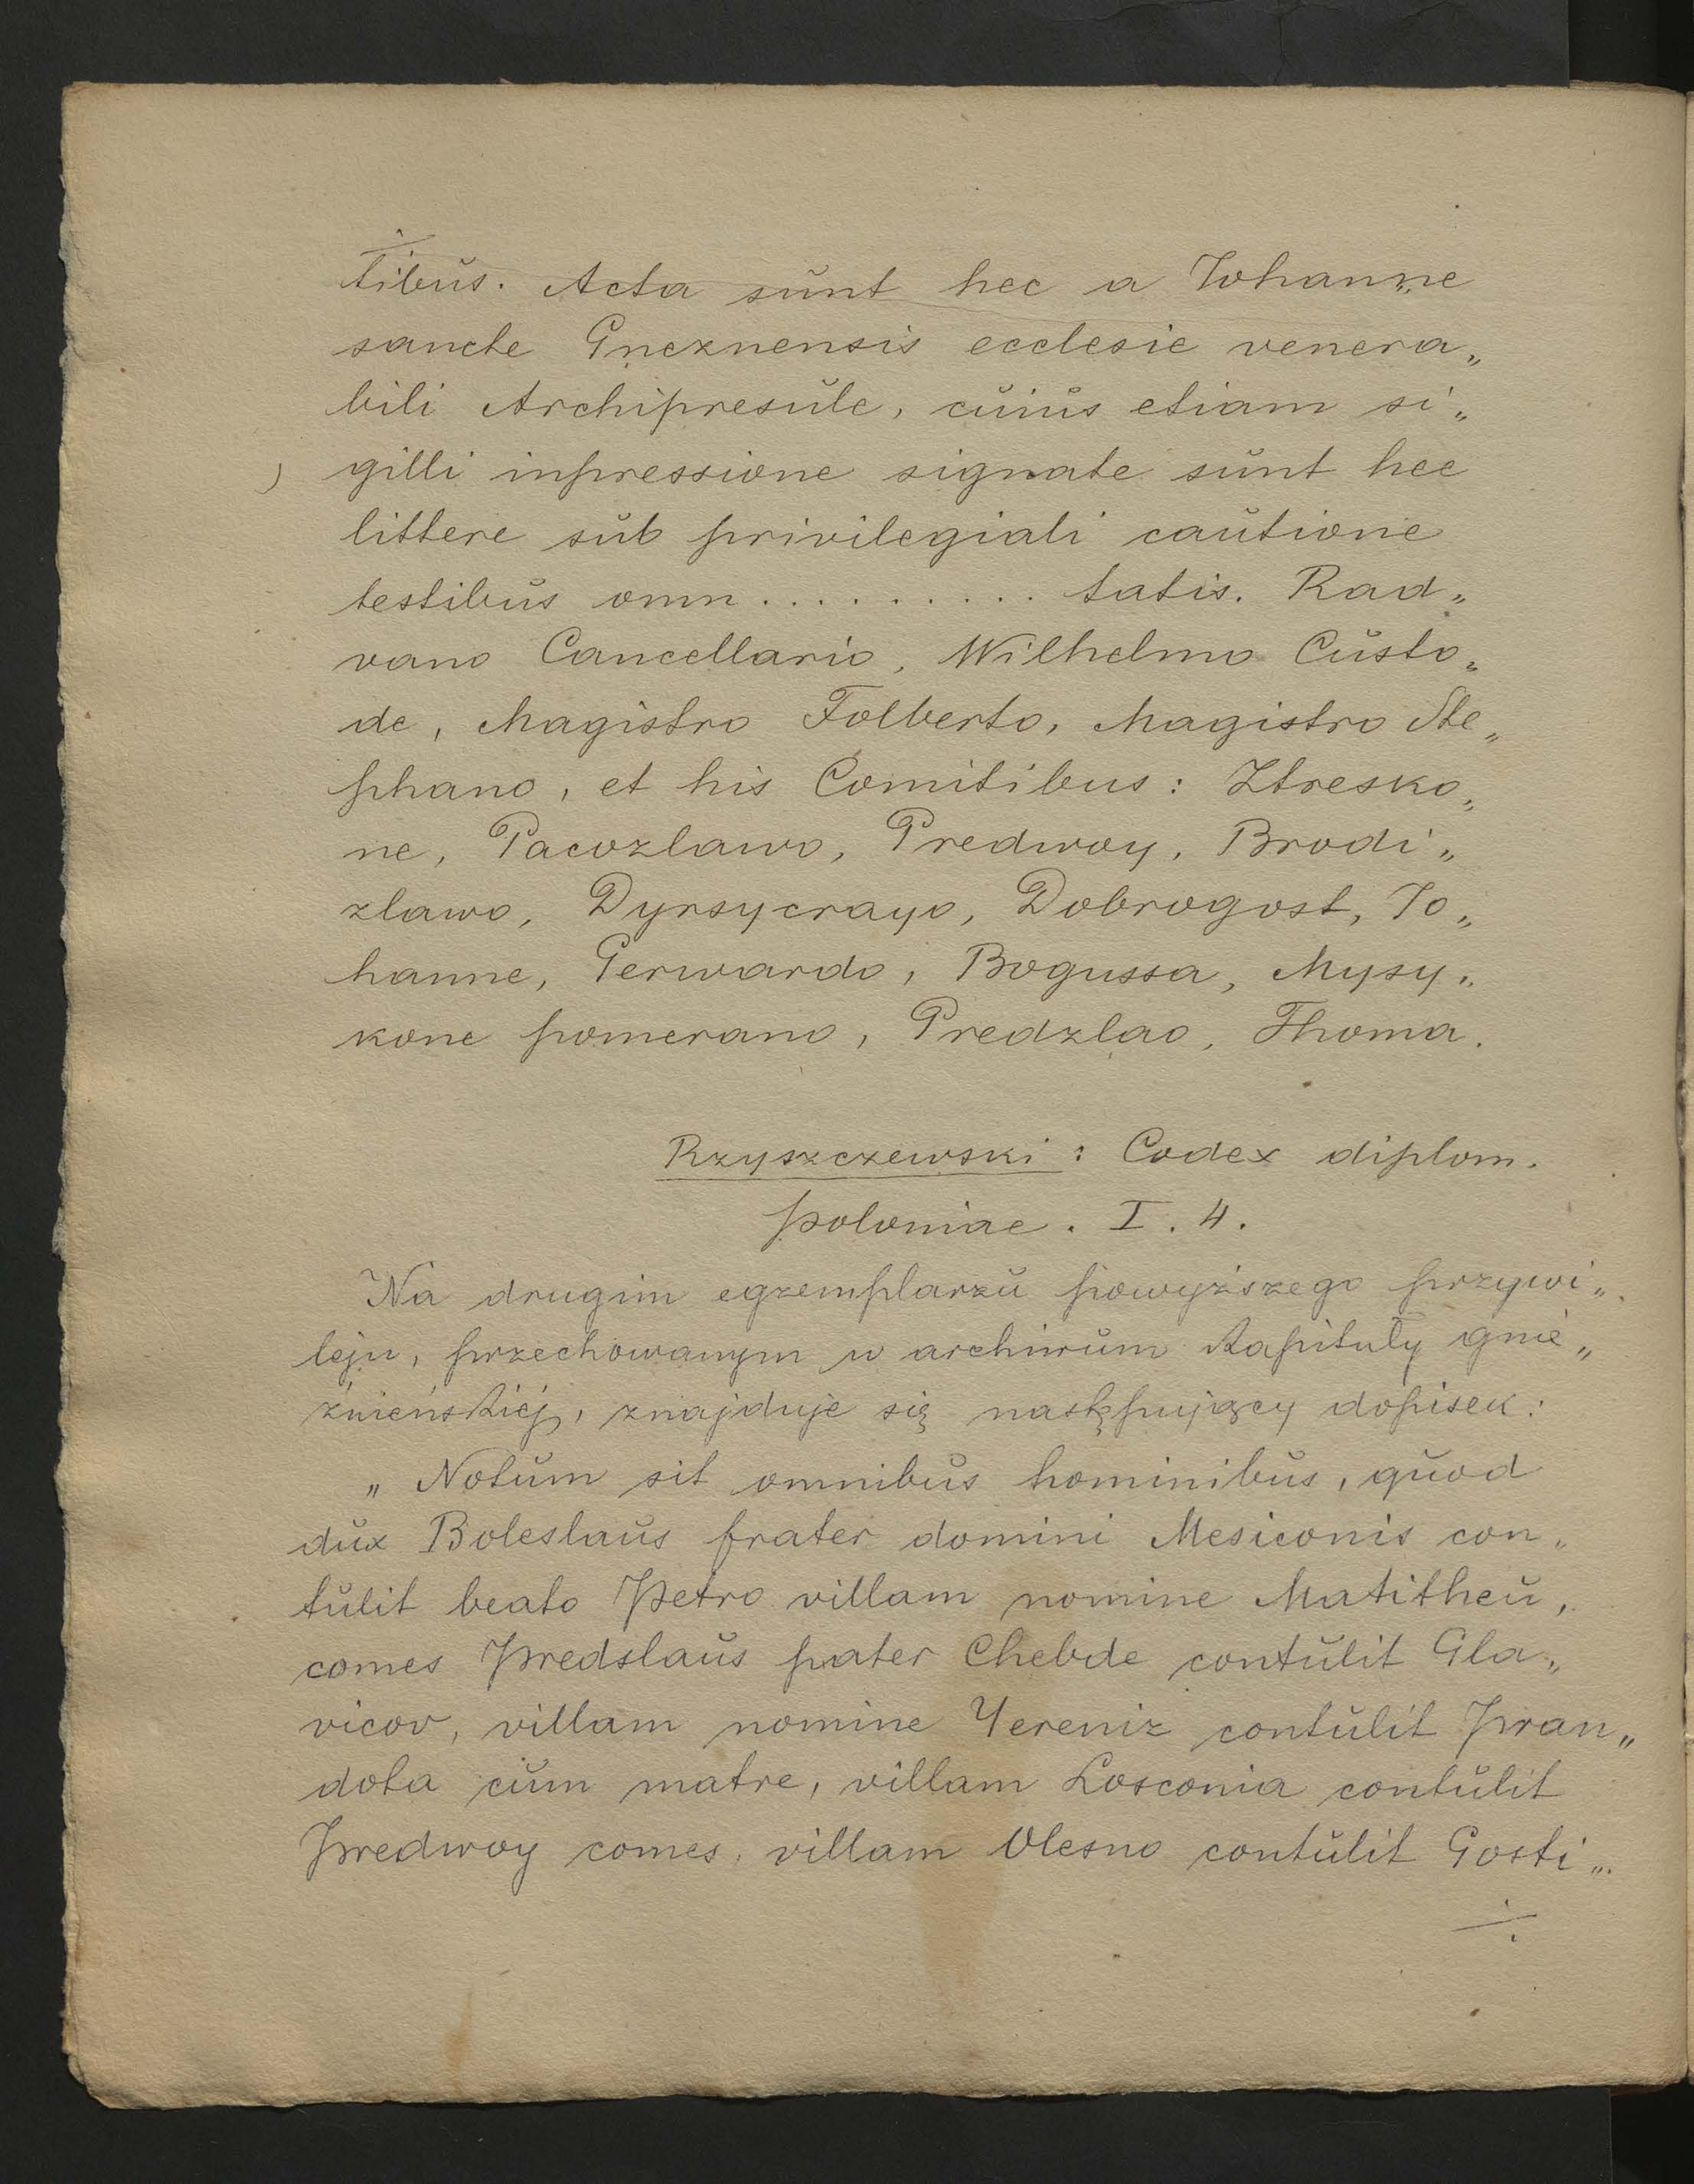 tibus. Acta sunt hec a Iohanne
sancte Gneznensis ecclesie venera„
bili Archipresule, cuius etiam si„
gilli inpressione signate sunt hee
littere sub privilegiali cautione
testibus omn.......... tatis. Rad„
vano Cancellario, Wilhelmo Custo„
de, Magistro Folberto, Magistro Ste„
phano, et his Comitibus: Ztresko„
ne, Pacozlawo, Predwoy, Brodi„
zlawo, Dyrsycrayo, Dobrogost, Jo„
hanne, Gerwardo, Bogussa, Mysy„
kone pomerano, Predzlao, Thoma.
Rzyszczewski: Codex diplom.
poloniae. I. 4.
Na drugim egzemplarzu powyższego przywi„
leju, przechowanym w archiwum Kapituły gnie„
źnieńskiéj, znajduje się następujący dopisek:
„Notum sit omnibus hominibus, quod
dux Boleslaus frater domini Mesiconis con„
tulit beato Petro villam nomine Matitheu,
comes Predslaus pater Chebde contulit Gla„
vicov, villam nomine Yereniz contulit Pran„
dota cum matre, villam Losconia contulit
Predwoy comes, villam Olesno contulit Gosti„